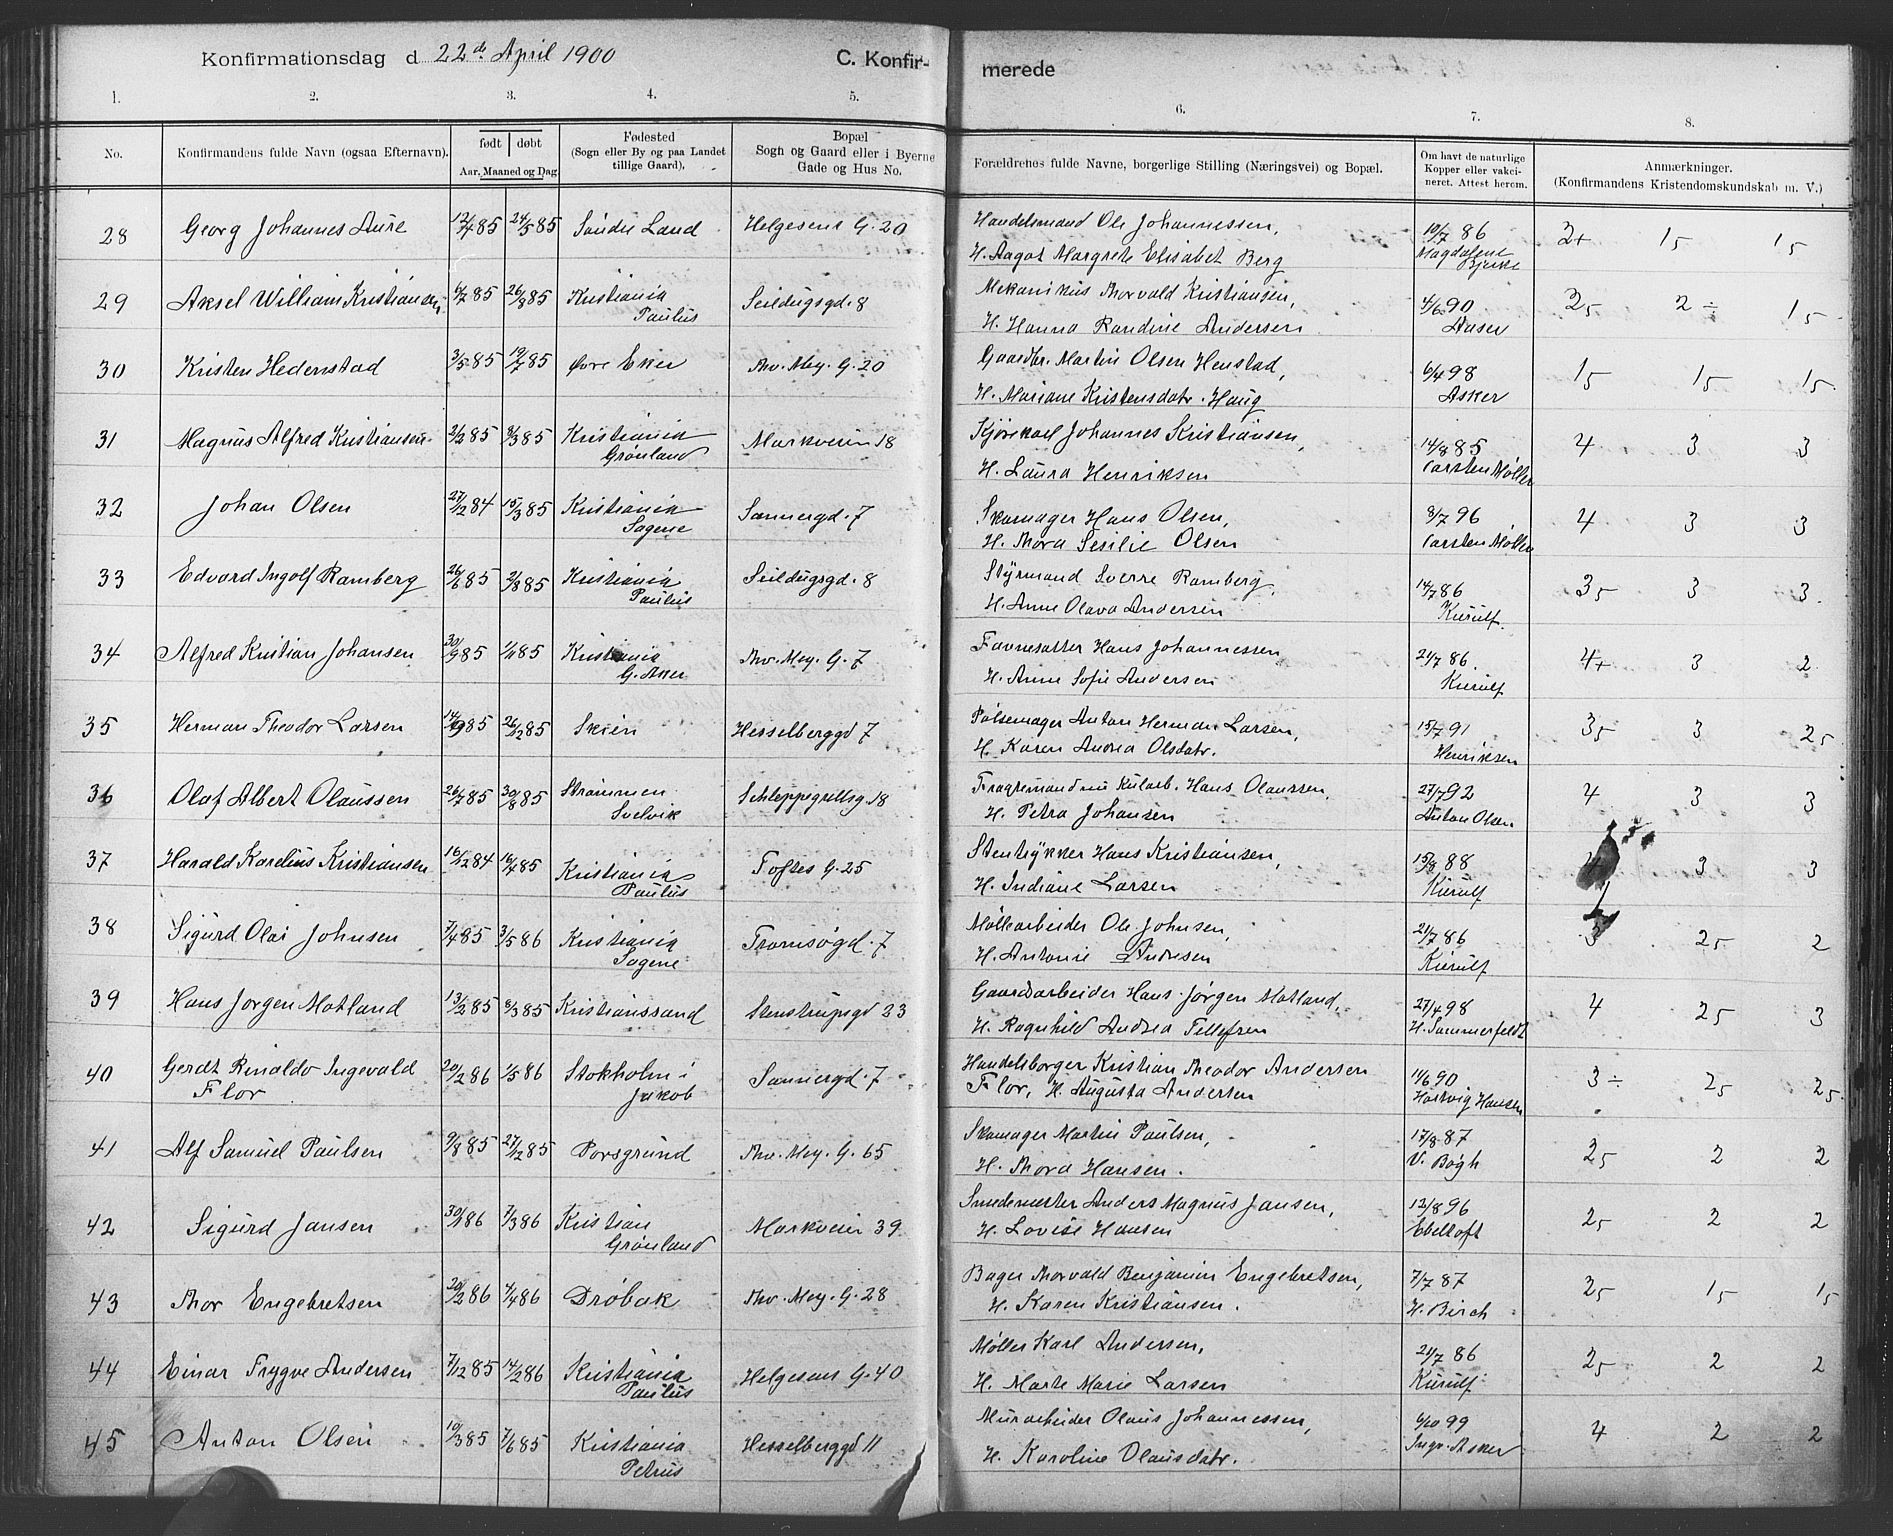 Konfirmationsdag d 22de April 1900 C. Konfir- merede
1. 2. 3. 4. 5. 6. 7. 8.
No. Konfirmandens fulde Navn (ogsaa Efternavn). født døbt Aar, Maaned og Dag Fødested (Sogn eller By og paa Landet tillige Gaard). Bopæl Sogn og Gaard eller i Byerne Gade og Hus No. Forældrenes fulde Navne, borgerlige Stilling (Næringsvei) og Bopæl. Om havt de naturlige Kopper eller vakcineret. Attest herom. Anmærkninger. (Konfirmandens Kristendomskundskab m. V.)
28 Georg Johannes Aure 12/4 85 24/5 85 Søndre Land Helgesens G. 20 Handelsmand Ole Johannessen, 19/7 86 2+ 15 15
H. Aagot Margrete Elisabet Berg Magdalene Bjerke
29 Aksel William Kristiansen 6/7 85 26/9 85 Kristiania Seildugsgd. 8 Mekanikus Thorvald Kristiansen, 4/6 90 35 2÷ 15
Paulus H. Hanna Randine Andersen Aaser
30 Kristen Hedenstad 3/5 85 19/7 85 Øvre Eker Thv. Mey. G. 20 Gaardbr. Martin Olsen Henstad, 6/4 98 15 15 15
H. Mariane Kristensdatr. Haug Asker
31 Magnus Alfred Kristiansen 2/2 85 8/3 85 Kristiania Markveien 18 Kjørekarl Johannes Kristiansen, 14/8 85 4 3 3
Grønland H. Laura Henriksen Carsten Møller
32 Johan Olsen 27/12 84 15/3 85 Kristiania Sannergd. 7 Skomager Hans Olsen, 8/7 96 4 3 3
Sagene H. Thora Sesilie Olsen Carsten Møller
33 Edvard Ingolf Ramberg 26/6 85 2/8 85 Kristiania Seildugsgd. 8 Styrmand Sverre Ramberg, 14/7 86 35 3 3.
Paulus H. Anne Olava Andersen Kierulf.
34 Alfred Kristian Johansen 30/9 85 1/11 85 Kristiania Thv. Mey. G. 7 Favnesætter Hans Johannessen 24/7 86. 4+ 3 2
G. Aker H. Anne Sofie Andersen Kierulf
35 Herman Theodor Larsen 14/9 85 26/12 85 Skien Hesselberggd 7 Pølsemager Anton Herman Larsen, 15/7 91 35 3 25
H. Karen Andrea Olsdatr. Henriksen
36 Olaf Albert Olaussen 26/7 85 30/8 85 Strømmen Schleppegrellsg. 18 Fragtemand nu Kularb. Hans Olaussen, 27/7 92 4 3 3
Svelvik H. Petra Johansen Anton Olsen
37 Harald Karelius Kristiansen 16/12 84 16/4 85 Kristiania Toftes G. 25 Stentrykker Hans Kristiansen, 15/8 88 3 3
Paulus H. Indiane Larsen Kierulf
38 Sigurd Olai Johnsen 7/4 85 3/5 86 Kristiania Tromsøgd. 7 Møllearbeider Ole Johnsen, 21/7 86 3 25 2
Sagene H. Antonie Andresen Kierulf
39 Hans Jørgen Motland 13/2 85 8/3 85 Kristianssand Stenstrupsgd 23 Gaardsarbeider Hans Jørgen Motland, 27/4 98 4 25 3
H. Ragnhild Andrea Tellefsen H. Sommerfeldt
40 Gerdt Rinaldo Ingevald 20/2 86 2/5 86 Stokholm i Sannergd. 7 Handelsborger Kristian Theodor Andersen 14/6 90 3÷ 25 25
Flor Jakob Flor, H. Augusta Andersen Hartvig Hansen
41 Alf Samuel Paulsen 9/8 85 27/12 85 Porsgrund Thv. Mey. G. 65 Skomager Martin Paulsen, 17/8 87 25 2 2
H. Thora Hansen. V. Bøgh
42 Sigurd Jansen 30/1 86 7/3 86 Kristian Markveien 39 Smedemester Anders Magnus Jansen, 12/8 96 25 2 2
Grønland H. Lovise Hansen Ebeltoft
43 Thor Engebretsen 20/2 86 7/4 86 Drøbak Thv. Mey. G. 28 Bager Thorvald Benjamin Engebretsen, 7/7 87 25 15 15
H. Karen Kristiansen. H. Birch
44 Einar Trygve Andersen 7/12 85 14/2 86 Kristiania Helgesens G. 40 Møller Karl Andersen, 21/7 86 25 2 2
Paulus H. Marte Marie Larsen Kierulf
45 Anton Olsen 10/3 85 7/6 85 Kristiania Hesselberggd 11 Murarbeider Olaus Johannessen, 6/10 99 4 2 2
Petrus H. Karoline Olausdatr. Asker